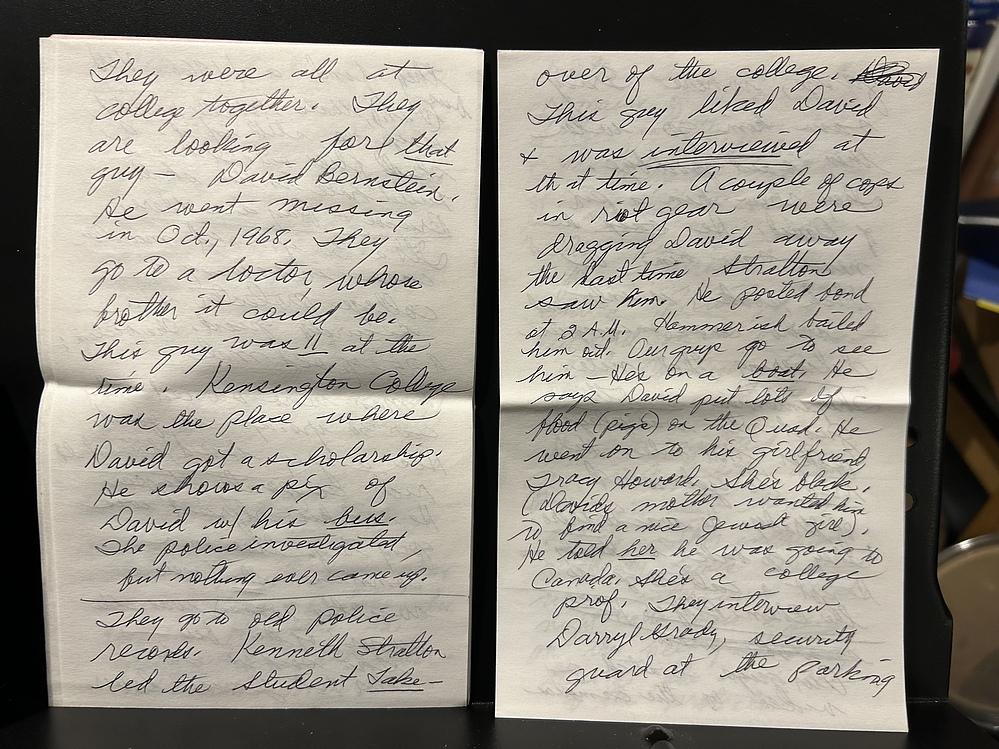 They were all at
college together. They
are looking for that
guy — David Bernstein.
He went missing
in Oct., 1968. They
go to a doctor, whose
brother it could be.
This guy was 11 at the
time. Kensington College
was the place where
David got a scholarship.
He shows a pix of
David w/ his bus.
The police investigated,
but nothing ever came up.
They go to old police
records. Kenneth Stratton
led the student Take-
over of the college. David
This guy liked David
+ was interviewed at
that time. A couple of cops
in riot gear were
dragging David away
the last time Stratton
saw him. He posted bond
at 2 A.M. Hammerish bailed
him out. Our guys go to see
him — He's on a boat. He
says David put lots of
blood (pigs) on the Quad. He
went on to his girlfriend,
Tracy Howard. She's black.
(Davids mother wanted him
to find a nice Jewish girl).
He told her he was going to
Canada. She's a college
prof. They interview
Darryl Grady, security
guard at the parking